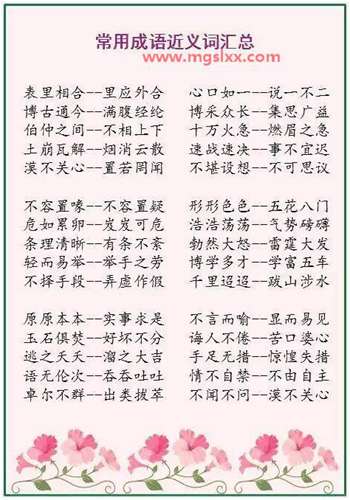 常用成语近义词汇总
www.mgslxx.com
表里相合--里应外合 心口如一--说一不二
博古通今--满腹经纶 博采众长--集思广益
伯仲之间--不相上下 十万火急--燃眉之急
土崩瓦解--烟消云散 速战速决--事不宜迟
漠不关心--置若罔闻 不堪设想--不可思议
不容置喙--不容置疑 形形色色--五花八门
危如累卵--发发可危 浩浩荡荡--气势磅礴
条理清晰--有条不紊 勃然大怒--雷霆大发
轻而易举--举手之劳 博学多才--学富五车
不择手段--弄虚作假 千里迢迢--跋山涉水
原原本本--实事求是 不言而喻--显而易见
玉石俱焚--好坏不分 诲人不倦--苦口婆心
逃之夭夭--溜之大吉 手足无措--惊惶失措
语无伦次--吞吞吐吐 情不自禁--不由自主
卓尔不群--出类拔萃 不闻不问--漠不关心